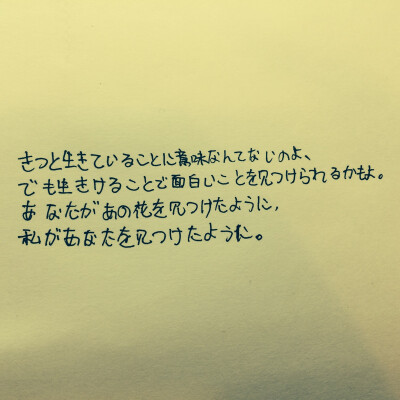 きっと生きていることに意味なんてないのよ、
でも生きけることで面白いことを見つけられるかもよ。
あなたがあの花を見つけたように、
私があなたを見つけたように。